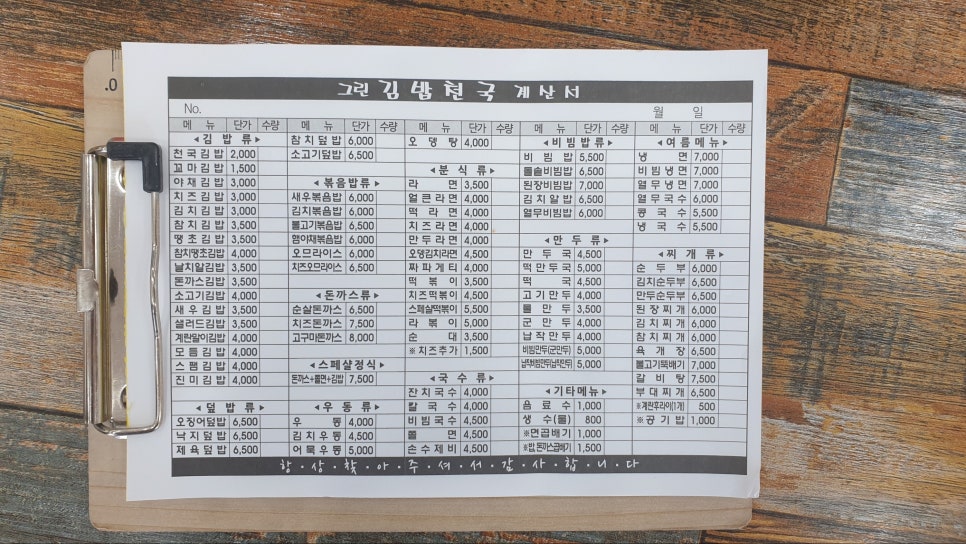 .0
그린 김밥천국 계산서
No. 월 일
메 뉴 단가 수량
◂김 밥 류▸
천국김밥 2,000
꼬마김밥 1,500
야채김밥 3,000
치즈김밥 3,000
김치김밥 3,000
참치김밥 3,500
땡초김밥 3,500
참치땡초김밥 4,000
날치알김밥 3,500
돈까스김밥 3,500
소고기김밥 4,000
새우김밥 3,500
샐러드김밥 3,500
계란말이김밥 4,000
모듬김밥 4,000
스팸김밥 4,000
진미김밥 4,000
◂덮 밥 류▸
오징어덮밥 6,500
낙지덮밥 6,500
제육덮밥 6,500
메 뉴 단가 수량
참치덮밥 6,000
소고기덮밥 6,500
◂볶음밥류▸
새우볶음밥 6,000
김치볶음밥 6,000
불고기볶음밥 6,500
햄야채볶음밥 6,000
오므라이스 6,000
치즈오므라이스 6,500
◂돈까스류▸
순살돈까스 6,500
치즈돈까스 7,500
고구마돈까스 8,000
◂스페샬정식▸
돈까스+쫄면+김밥 7,500
◂우 동 류▸
우 동 4,000
김치우동 4,500
어묵우동 5,000
메 뉴 단가 수량
오 뎅 탕 4,000
◂분 식 류▸
라 면 3,500
얼큰라면 4,000
떡라면 4,000
치즈라면 4,000
만두라면 4,000
오뎅김치라면 4,500
짜파게티 4,000
떡 볶 이 3,500
치즈떡볶이 4,500
스페샬떡볶이 5,500
라 볶 이 5,000
순 대 3,500
※치즈추가 1,500
◂국 수 류▸
잔치국수 4,000
칼 국 수 4,000
비빔국수 4,500
쫄 면 4,500
손수제비 4,500
메 뉴 단가 수량
◂비빔밥류▸
비 빔 밥 5,500
돌솥비빔밥 6,500
된장비빔밥 7,000
김치알밥 6,500
열무비빔밥 6,000
◂만 두 류▸
만 두 국 4,500
떡만두국 5,000
떡 국 4,500
고기만두 4,000
물 만 두 3,500
군 만 두 4,000
납작만두 4,000
비빔만두(군만두) 5,000
납작비빔만두(납작만두) 5,000
◂기타메뉴▸
음 료 수 1,000
생 수(물) 800
※면곱배기 1,000
※밥,돈까스곱배기 1,500
메 뉴 단가 수량
◂여름메뉴▸
냉 면 7,000
비빔냉면 7,000
열무냉면 7,000
열무국수 6,000
콩 국 수 5,500
냉 국 수 5,500
◂찌 개 류▸
순 두 부 6,000
김치순두부 6,500
만두순두부 6,500
된장찌개 6,000
김치찌개 6,000
참치찌개 6,000
육 개 장 6,500
불고기뚝배기 7,000
갈 비 탕 7,500
부대찌개 6,500
※계란후라이(1개) 500
※공 기 밥 1,000
항·상·찾·아·주·셔·서·감·사·합·니·다